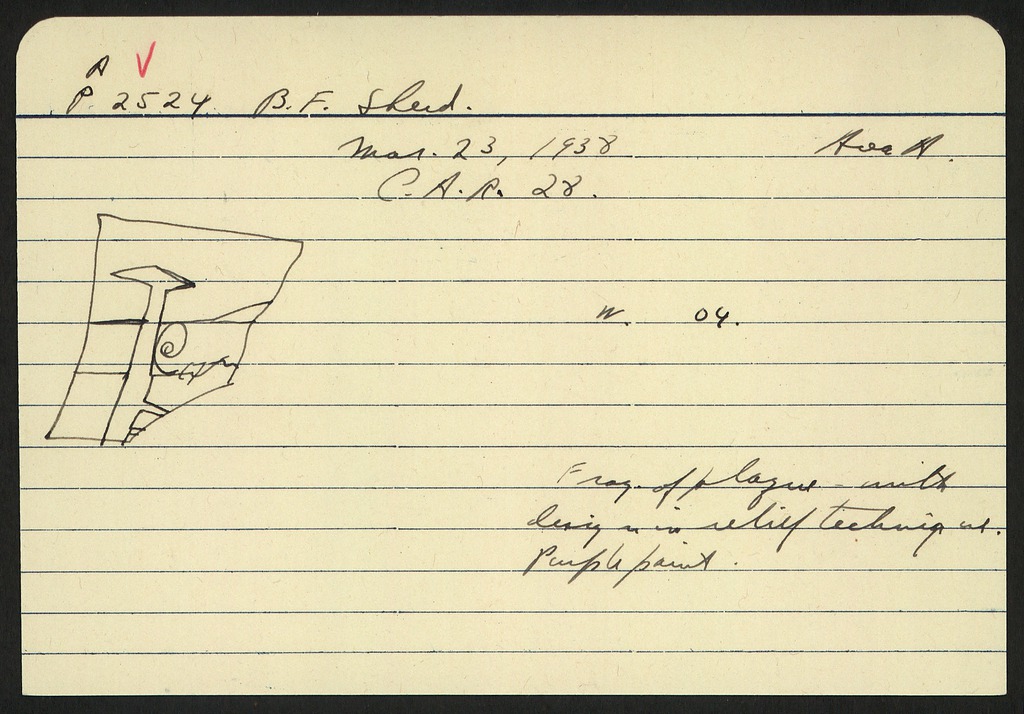 A V
P. 2524. B.F. Sherd.
Mar. 23, 1938
C.A.R. 28.
W. 04.
Frag. of plaque - with
design in relief technique.
Purple paint.